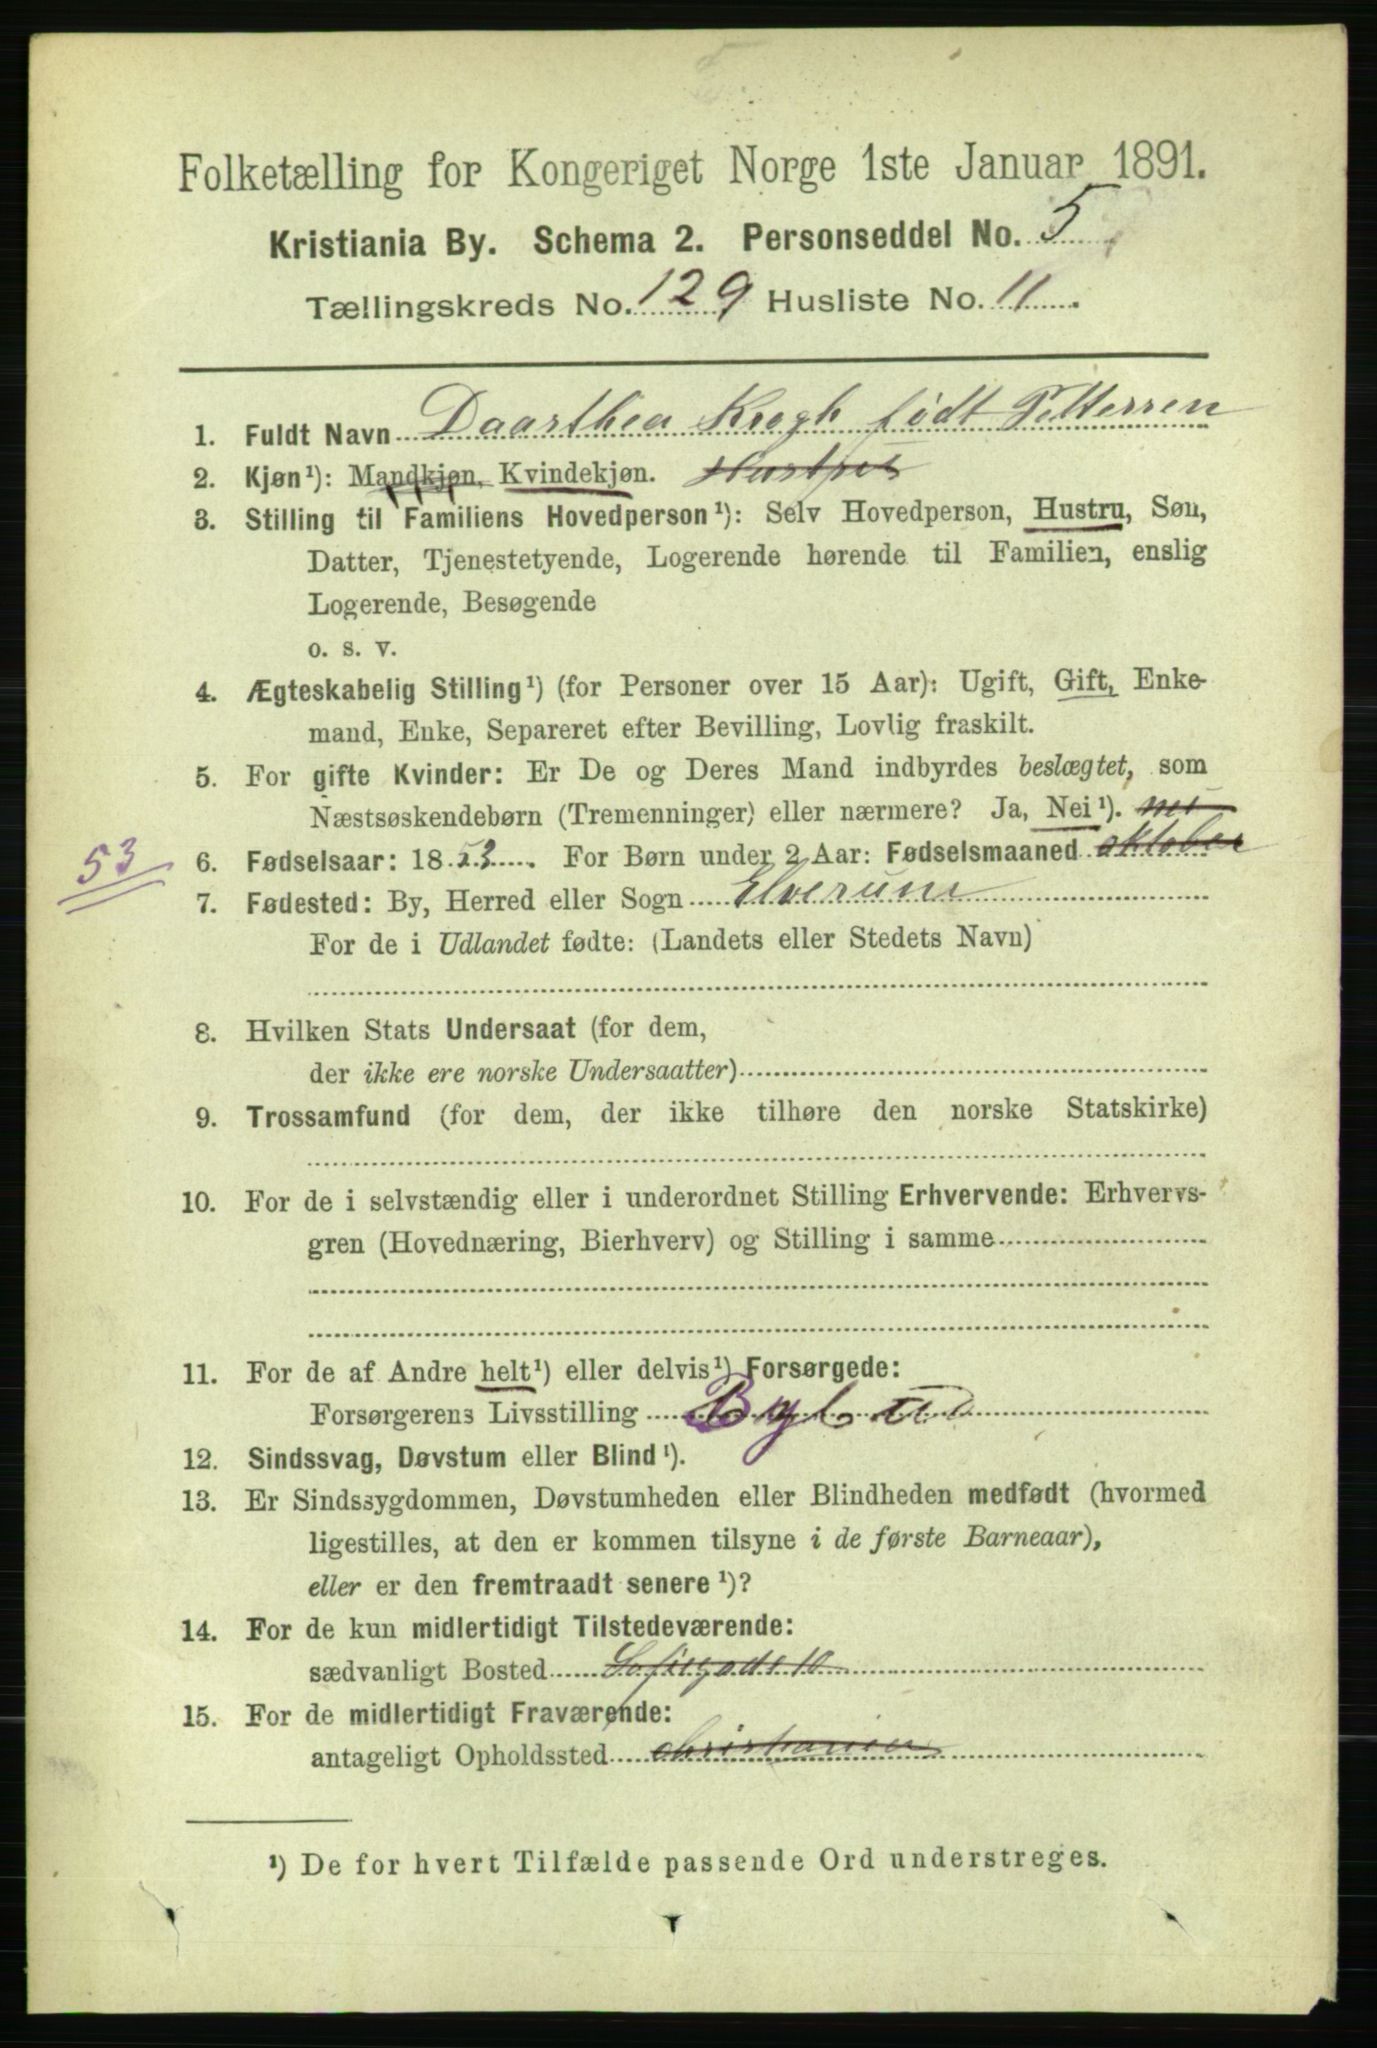 Folketælling for Kongeriget Norge 1ste Januar 1891.
Kristiania By. Schema 2. Personseddel No. 5
Tællingskreds No. 129 Husliste No. 11
1. Fuldt Navn Daarthea Krogh født Pettersen
2. Kjøn¹): Mandkjøn, Kvindekjøn. Hustru
3. Stilling til Familiens Hovedperson¹): Selv Hovedperson, Hustru, Søn,
Datter, Tjenestetyende, Logerende hørende til Familien, enslig
Logerende, Besøgende
o. s. v.
4. Ægteskabelig Stilling¹) (for Personer over 15 Aar): Ugift, Gift, Enke-
mand, Enke, Separeret efter Bevilling, Lovlig fraskilt.
5. For gifte Kvinder: Er De og Deres Mand indbyrdes beslægtet, som
Næstsøskendebørn (Tremenninger) eller nærmere? Ja, Nei¹). nei
53 6. Fødselsaar: 1853. For Børn under 2 Aar: Fødselsmaaned oktober
7. Fødested: By, Herred eller Sogn Elverum
For de i Udlandet fødte: (Landets eller Stedets Navn)
8. Hvilken Stats Undersaat (for dem,
der ikke ere norske Undersaatter)
9. Trossamfund (for dem, der ikke tilhøre den norske Statskirke)
10. For de i selvstændig eller i underordnet Stilling Erhvervende: Erhvervs-
gren (Hovednæring, Bierhverv) og Stilling i samme
11. For de af Andre helt¹) eller delvis¹) Forsørgede:
Forsørgerens Livsstilling Bybud
12. Sindssvag, Døvstum eller Blind¹).
13. Er Sindssygdommen, Døvstumheden eller Blindheden medfødt (hvormed
ligestilles, at den er kommen tilsyne i de første Barneaar),
eller er den fremtraadt senere¹)?
14. For de kun midlertidigt Tilstedeværende:
sædvanligt Bosted Sofiegade 10
15. For de midlertidigt Fraværende:
antageligt Opholdssted
¹) De for hvert Tilfælde passende Ord understreges.